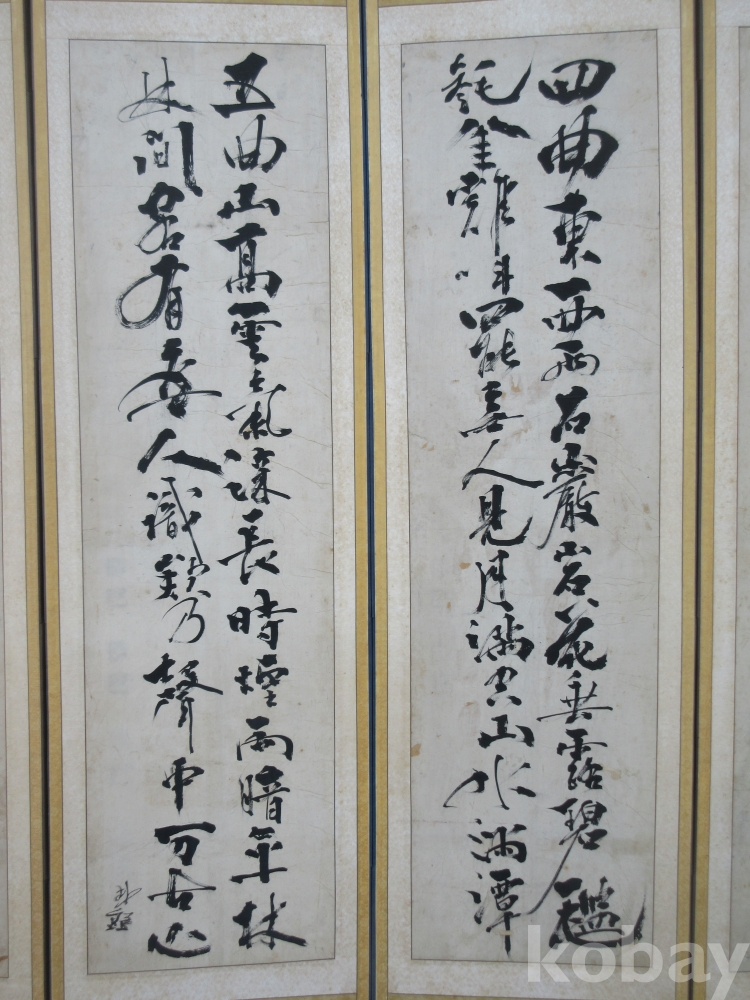 四曲東西兩石巖岩花垂露碧㲯
毿金雞叫罷無人見月滿空山水滿潭
五曲山高雲氣深長時煙雨暗平林
林間客有無人識欸乃聲中万古心
kobay